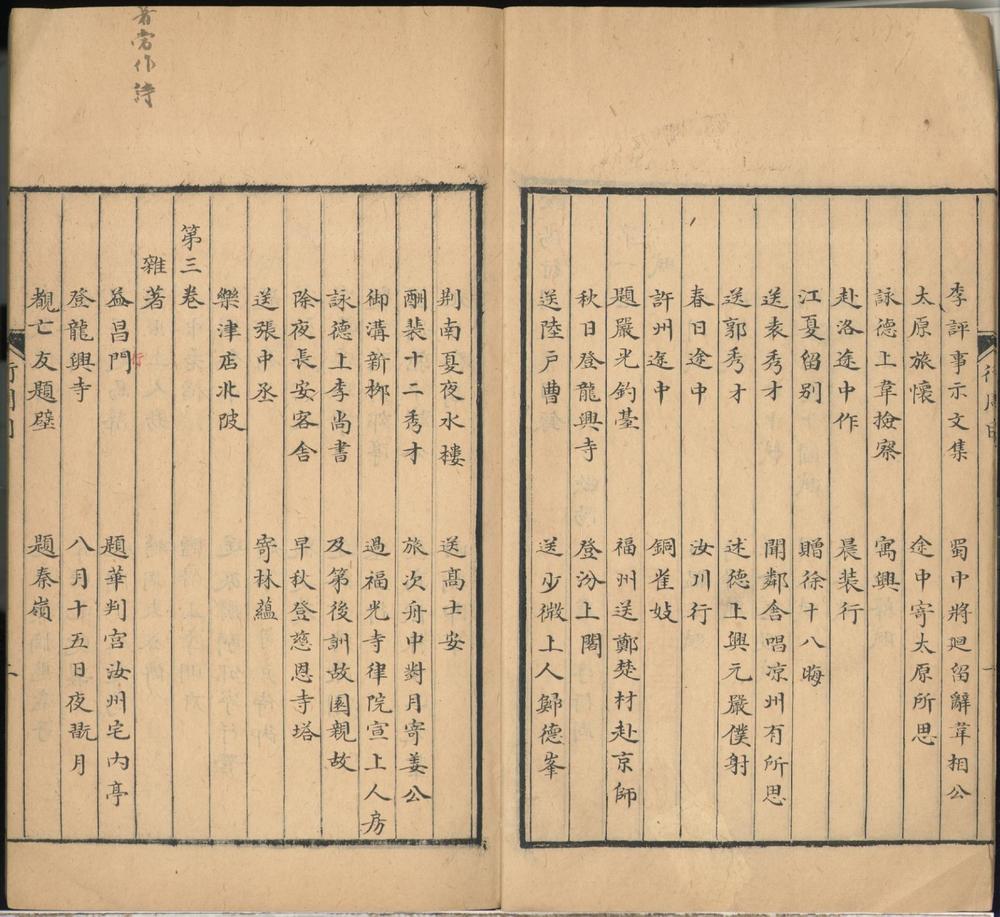 李評事示文集　蜀中將廻留辭韋相公
太原旅懷　途中寄太原所思
詠德上韋撿察　寓興
赴洛途中作　晨装行
江夏留别　贈徐十八晦
送袁秀才　聞鄰舍唱凉州有所思
送郭秀才　述德上興元嚴僕射
春日途中　汝川行
許州途中　銅雀妓
題嚴光釣䑓　福州送鄭楚材赴京師
秋日登龍興寺　登汾上閣
送陸戶曹　送少微上人歸德峯
荆南夏夜水樓　送高士安
酬裴十二秀才　旅次舟中對月寄姜公
御溝新栁　過福光寺律院宣上人房
詠德上李尚書　及第後訓故園親故
除夜長安客舍　早秋登慈恩寺塔
送張中丞　寄林藴
樂津店北陂
第三卷
雜著
益昌門行　題華判官汝州宅内亭
登龍興寺　八月十五日夜翫月
覩亡友題壁　題秦嶺
著當作詩